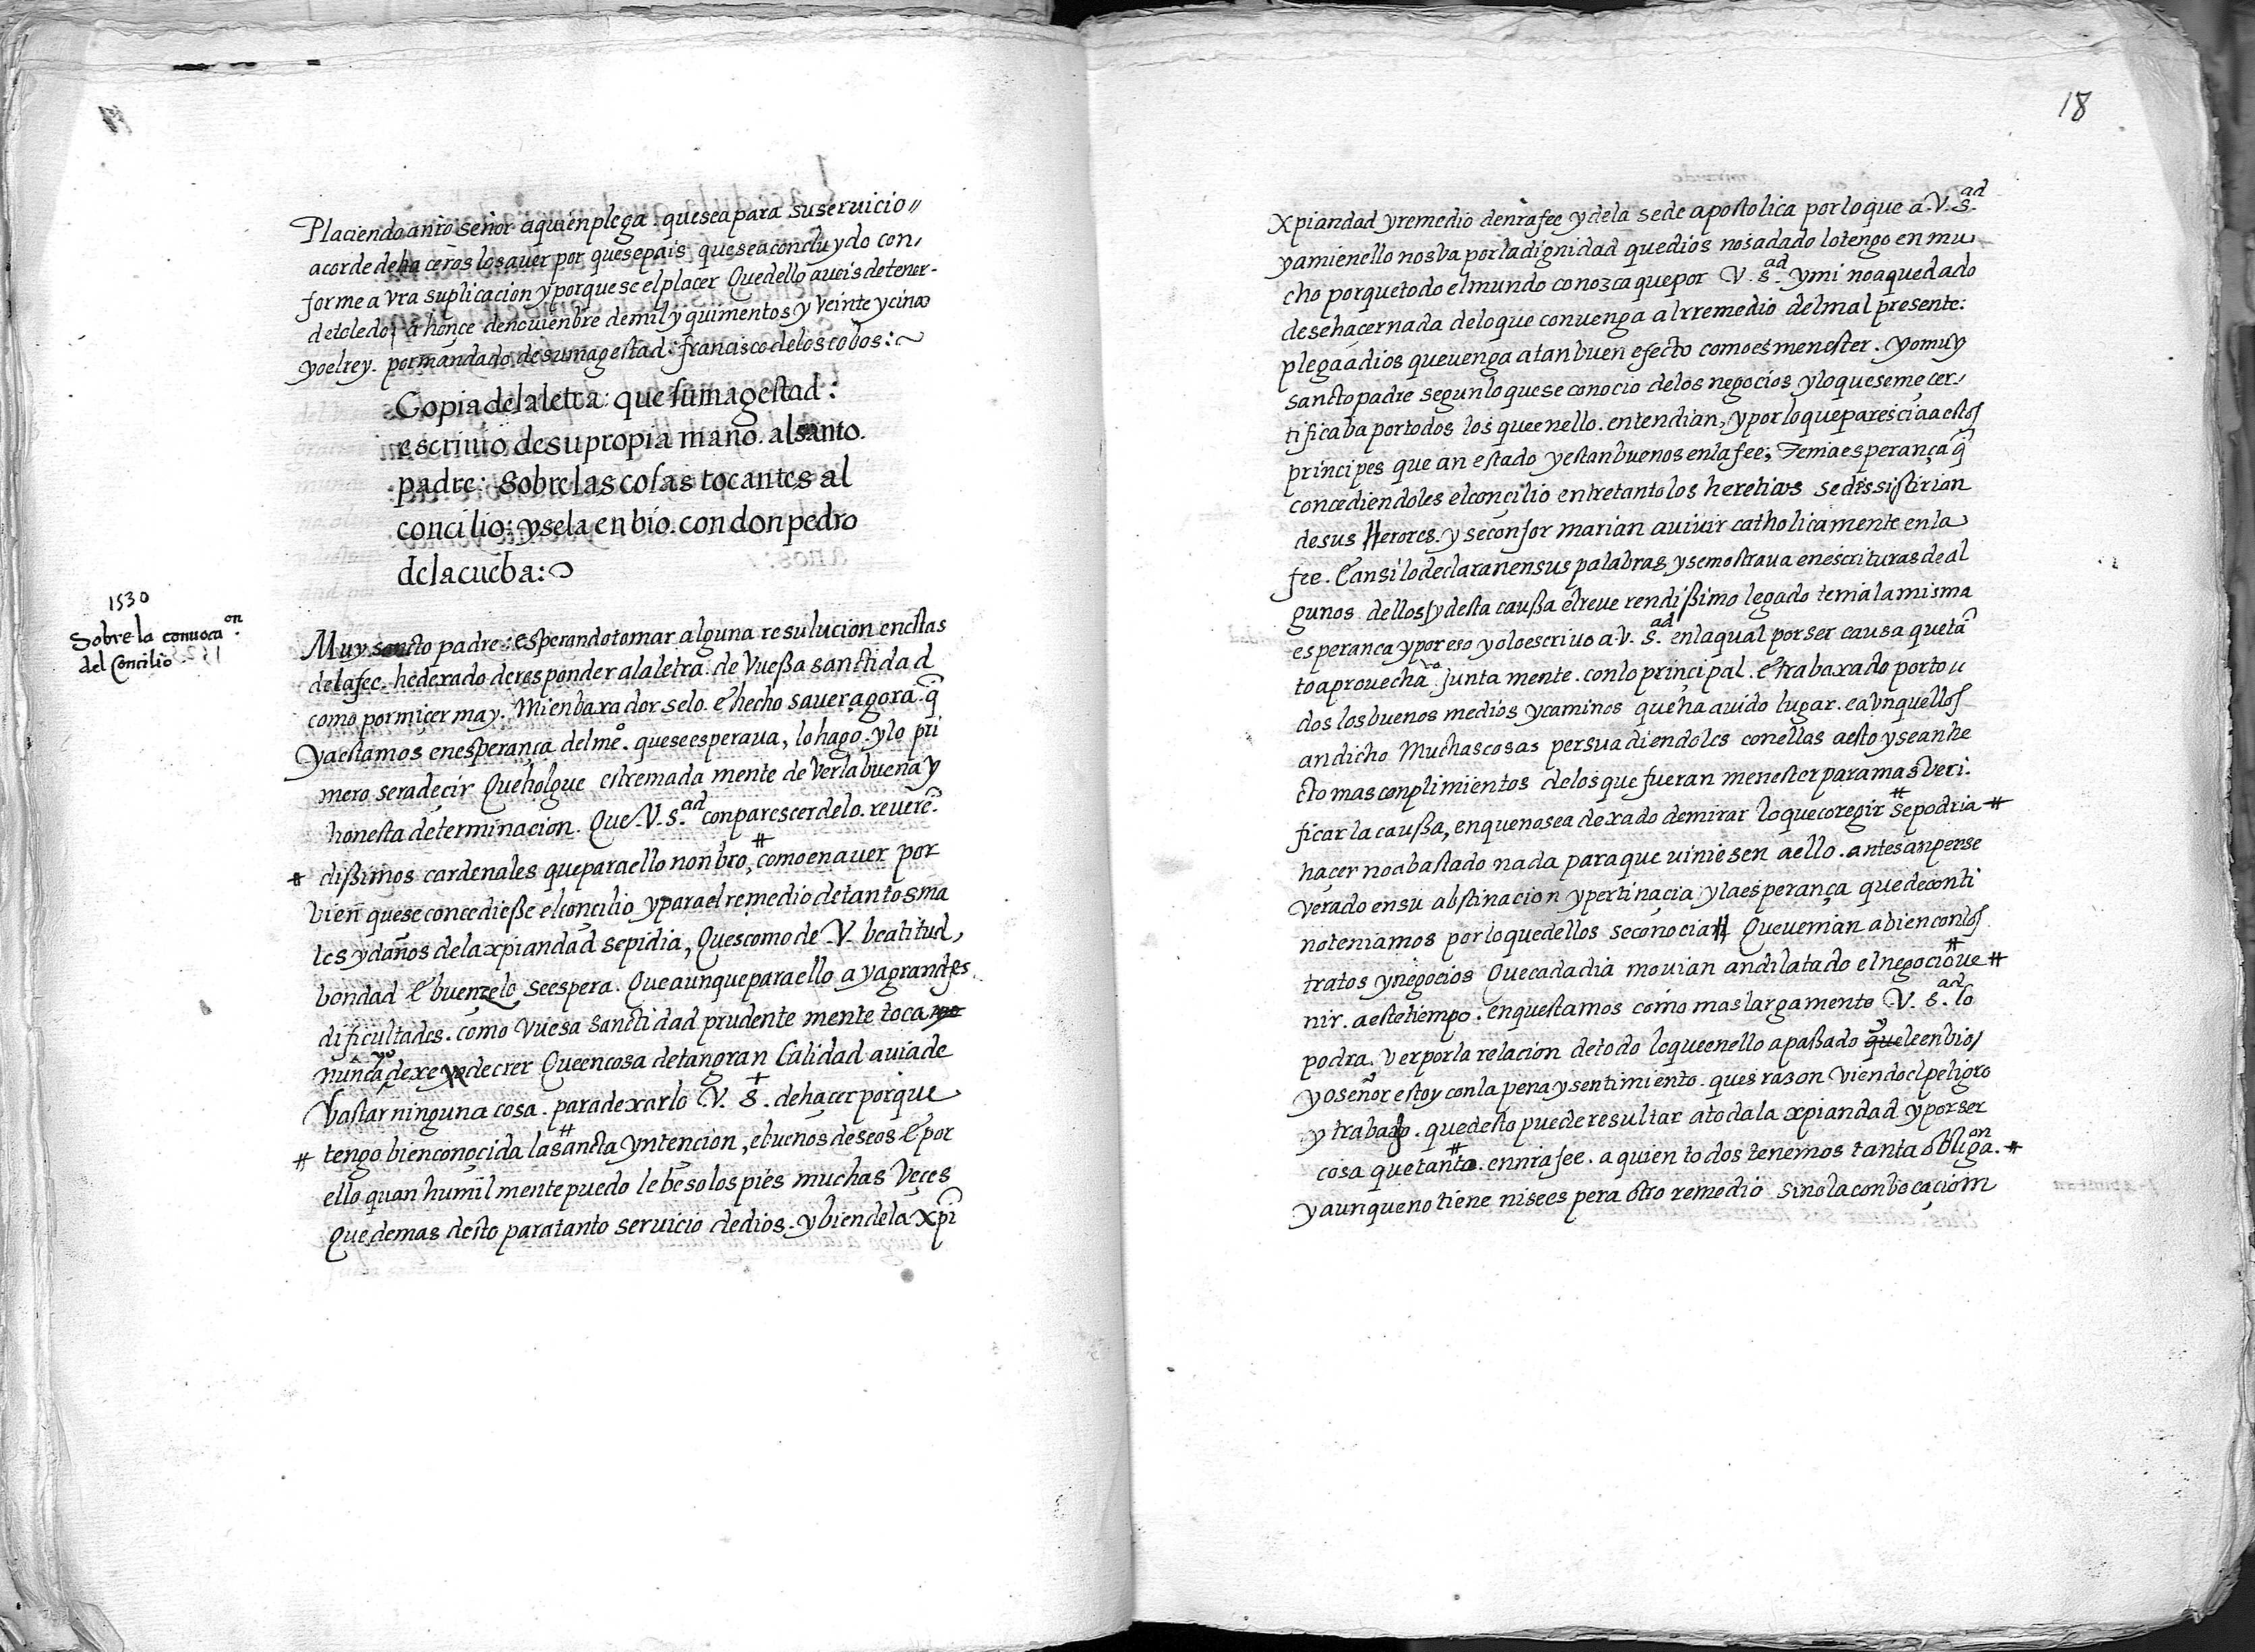 Placiendo a nr̃o señor aquien plega que sea para su servicio //
acorde de haceros lo saver por que sepais que sea concluydo con,
forme a vr̃a suplicacion y porque se el placer Que dello aveis de tener -
de toledo, a honçe de novienbre de mil y quinientos y veinte y cinco
yo el rey. por mandado de su magestad: francisco de los cobos:~
Copia de la letra: que su magestad:
escriuio de su propia mano. al santo.
padre: Sobre las cosas tocantes al
concilio: y se la enbio. con don pedro
de la cueba:
1530
Sobre la convoca.on
del Concilio
Muy sancto padre: esperando tomar alguna resulucion en estas
de la fee. he dexado de responder a la letra. de Vueßa sanctidad
como por miçer may. Mi enbaxador se lo. e hecho saver agora. q̃
ya estamos en esperança del me.º que se esperaua, lo hago. y lo pri
mero sera decir Que holgue estremada mente de Ver la buena y
honesta determinacion. Que. V. S.ad con parescer de lo. revere.
# dißimos cardenales que para ello nonbro, # como en aver por
bien que se concedieße el concilio y para el remedio de tantos ma
les y daños de la xpiandad se pidia, Ques como de .V. beatitud,
bondad e buen zelo se espera. Que aunque para ello aya grandes
dificultades. como Vuesa Sanctidad prudente mente toca
nunca dexe yo de crer Que en cosa de tan gran Calidad avia de
Vastar ninguna cosa. para dexarlo V. S. de hacer porque
# tengo bien conoçida la # sancta yntencion, e buenos deseos e por
ello quan humil mente puedo le beso los pies muchas Veçes
Que demas desto para tanto servicio de dios. y bien de la xpi
18
xpiandad y remedio de nr̃a fee y de la sede apostolica por lo que a .V. S.ad
y a mi en ello nos va por la dignidad que dios nos a dado lo tengo en mu
cho porque todo el mundo conozca que por V. S.ad y mi no a quedado
de se hacer nada de lo que convenga al rremedio del mal presente:
plega a dios que venga a tan buen efecto como es menester. yo muy
sancto padre segun lo que se conocio de los negocios y lo que se me cer,
tificaba por todos los que en ello. entendian, y por lo que parescia a estos
principes que an estado y estan buenos en la fee; Tenia esperança q̃
concediendoles el concilio entretanto los heretias se dessistirian
de sus Herores. y se conformarian a vivir catholicamente en la
fee. E ansi lo declaran en sus palabras, y se mostrava en escrituras de al
gunos dellos y desta caußa el reve rendißimo legado tenia la misma
esperança y por eso yo lo escrivo a .V. S.ad en la qual por ser causa que tã
to aprovecha junta mente. con lo principal. e trabaxado por to
dos los buenos medios y caminos que ha auido lugar. e a vnquellos
an dicho Muchas cosas persuadiendoles con ellas a esto y se an he
cto mas conplimientos de los que fueran menester para mas veri.
ficar la caußa, en que no sea dexado de mirar lo que coregir # se podria #
hacer no a bastado nada para que viniesen a ello. antes an perse
verado en su abstinacion y pertinacia y la esperança que de conti
no teniamos por lo que dellos se conocia Que venian a bien con los
tratos y negocios Que cada dia movian an dilatado el negocio # ve #
nir. a este tiempo. en questamos como mas largamente V. S.ad lo
podra, ver por la relacion de todo lo que en ello a paßado que le enbio/
yo señor estoy con la pena y sentimiento. ques razon viendo el peligro
y trabajo. que desto puede resultar a toda la xpiandad y por ser
cosa que tanto # en nr̃a fee. a quien todos tenemos tanta obliga.on #
y aunque no tiene ni se espera otro remedio sino la conbocaciom